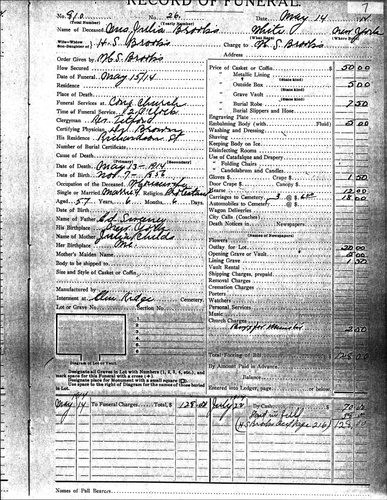 RECORD OF FUNERAL.
7
No. 810 No. 26. Date May 14
(Total Number) (Yearly Number)
Name of Deceased Mrs Julia Brooks White New York
Wife-Widow
Son-Daughter of H. S. Brooks Charge to H. S. Brooks
Address
Order Given by H. S. Brooks
How Secured
Date of Funeral May 15/14
Residence
Place of Death
Funeral Services at Cong Church
Time of Funeral Service 2 O'Clock
Clergyman Rev. Telford
Certifying Physician Dr Brown
His Residence
Number of Burial Certificate
Cause of Death
(Primary) (Secondary)
Date of Death May 13 - 1914
Date of Birth Nov. 7 - 1856
Occupation of the Deceased Housewife
Single or Married Married Religion
Aged 57 Years 6 Months 6 Days
Name of Father Ed Sweney
His Birthplace New York
Name of Mother Julia Childs
Her Birthplace
Mother's Maiden Name
Body to be shipped to
Size and Style of Casket or Coffin
Manufactured by
Interment at Elm Ridge Cemetery.
Lot or Grave No. Section No.
Diagram of Lot or Vault
Designate all Graves in Lot with Numbers (1, 2, 3, 4, etc.), and
mark space for this Funeral with a cross (+)
Designate place for Monument with a small square
Use space to the right of Diagram for the names of those buried
in Lot.
Price of Casket or Coffin 50.00
" Metallic Lining
(State kind)
" Outside Box 5.00
(State kind)
" Grave Vault
(State kind)
" Burial Robe 2.50
" Burial Slippers and Hose
Engraving Plate
Embalming Body (with Fluid) 5.00
Washing and Dressing
Shaving
Keeping Body on Ice
Disinfecting Rooms
Use of Catafalque and Drapery
" Folding Chairs
" Candelabrum and Candles
Gloves $ Crape $ 1.50
Door Crape $
Hearse 12.00
Carriages to Cemetery 3 @ $ 6.00 18.00
Automobiles to Cemetery @ $
Wagon Deliveries
City Calls (Coaches)
Death Notices in Newspapers
(Names of Newspapers)
Flowers
Outlay for Lot
Opening Grave or Vault
Lining Grave 1.50
Vault Rental
Shipping Charges, prepaid
Removal Charges
Cremation Charges
Porters
Watchers
Personal Services
Music
Church Charges
2.00
Total Footing of Bill
By Amount Paid in Advance
Balance
Entered into Ledger, page or below
May 14 To Funeral Charges Total, $ 128.00 July 22 By Cash
Paid in full
Names of Pall Bearers